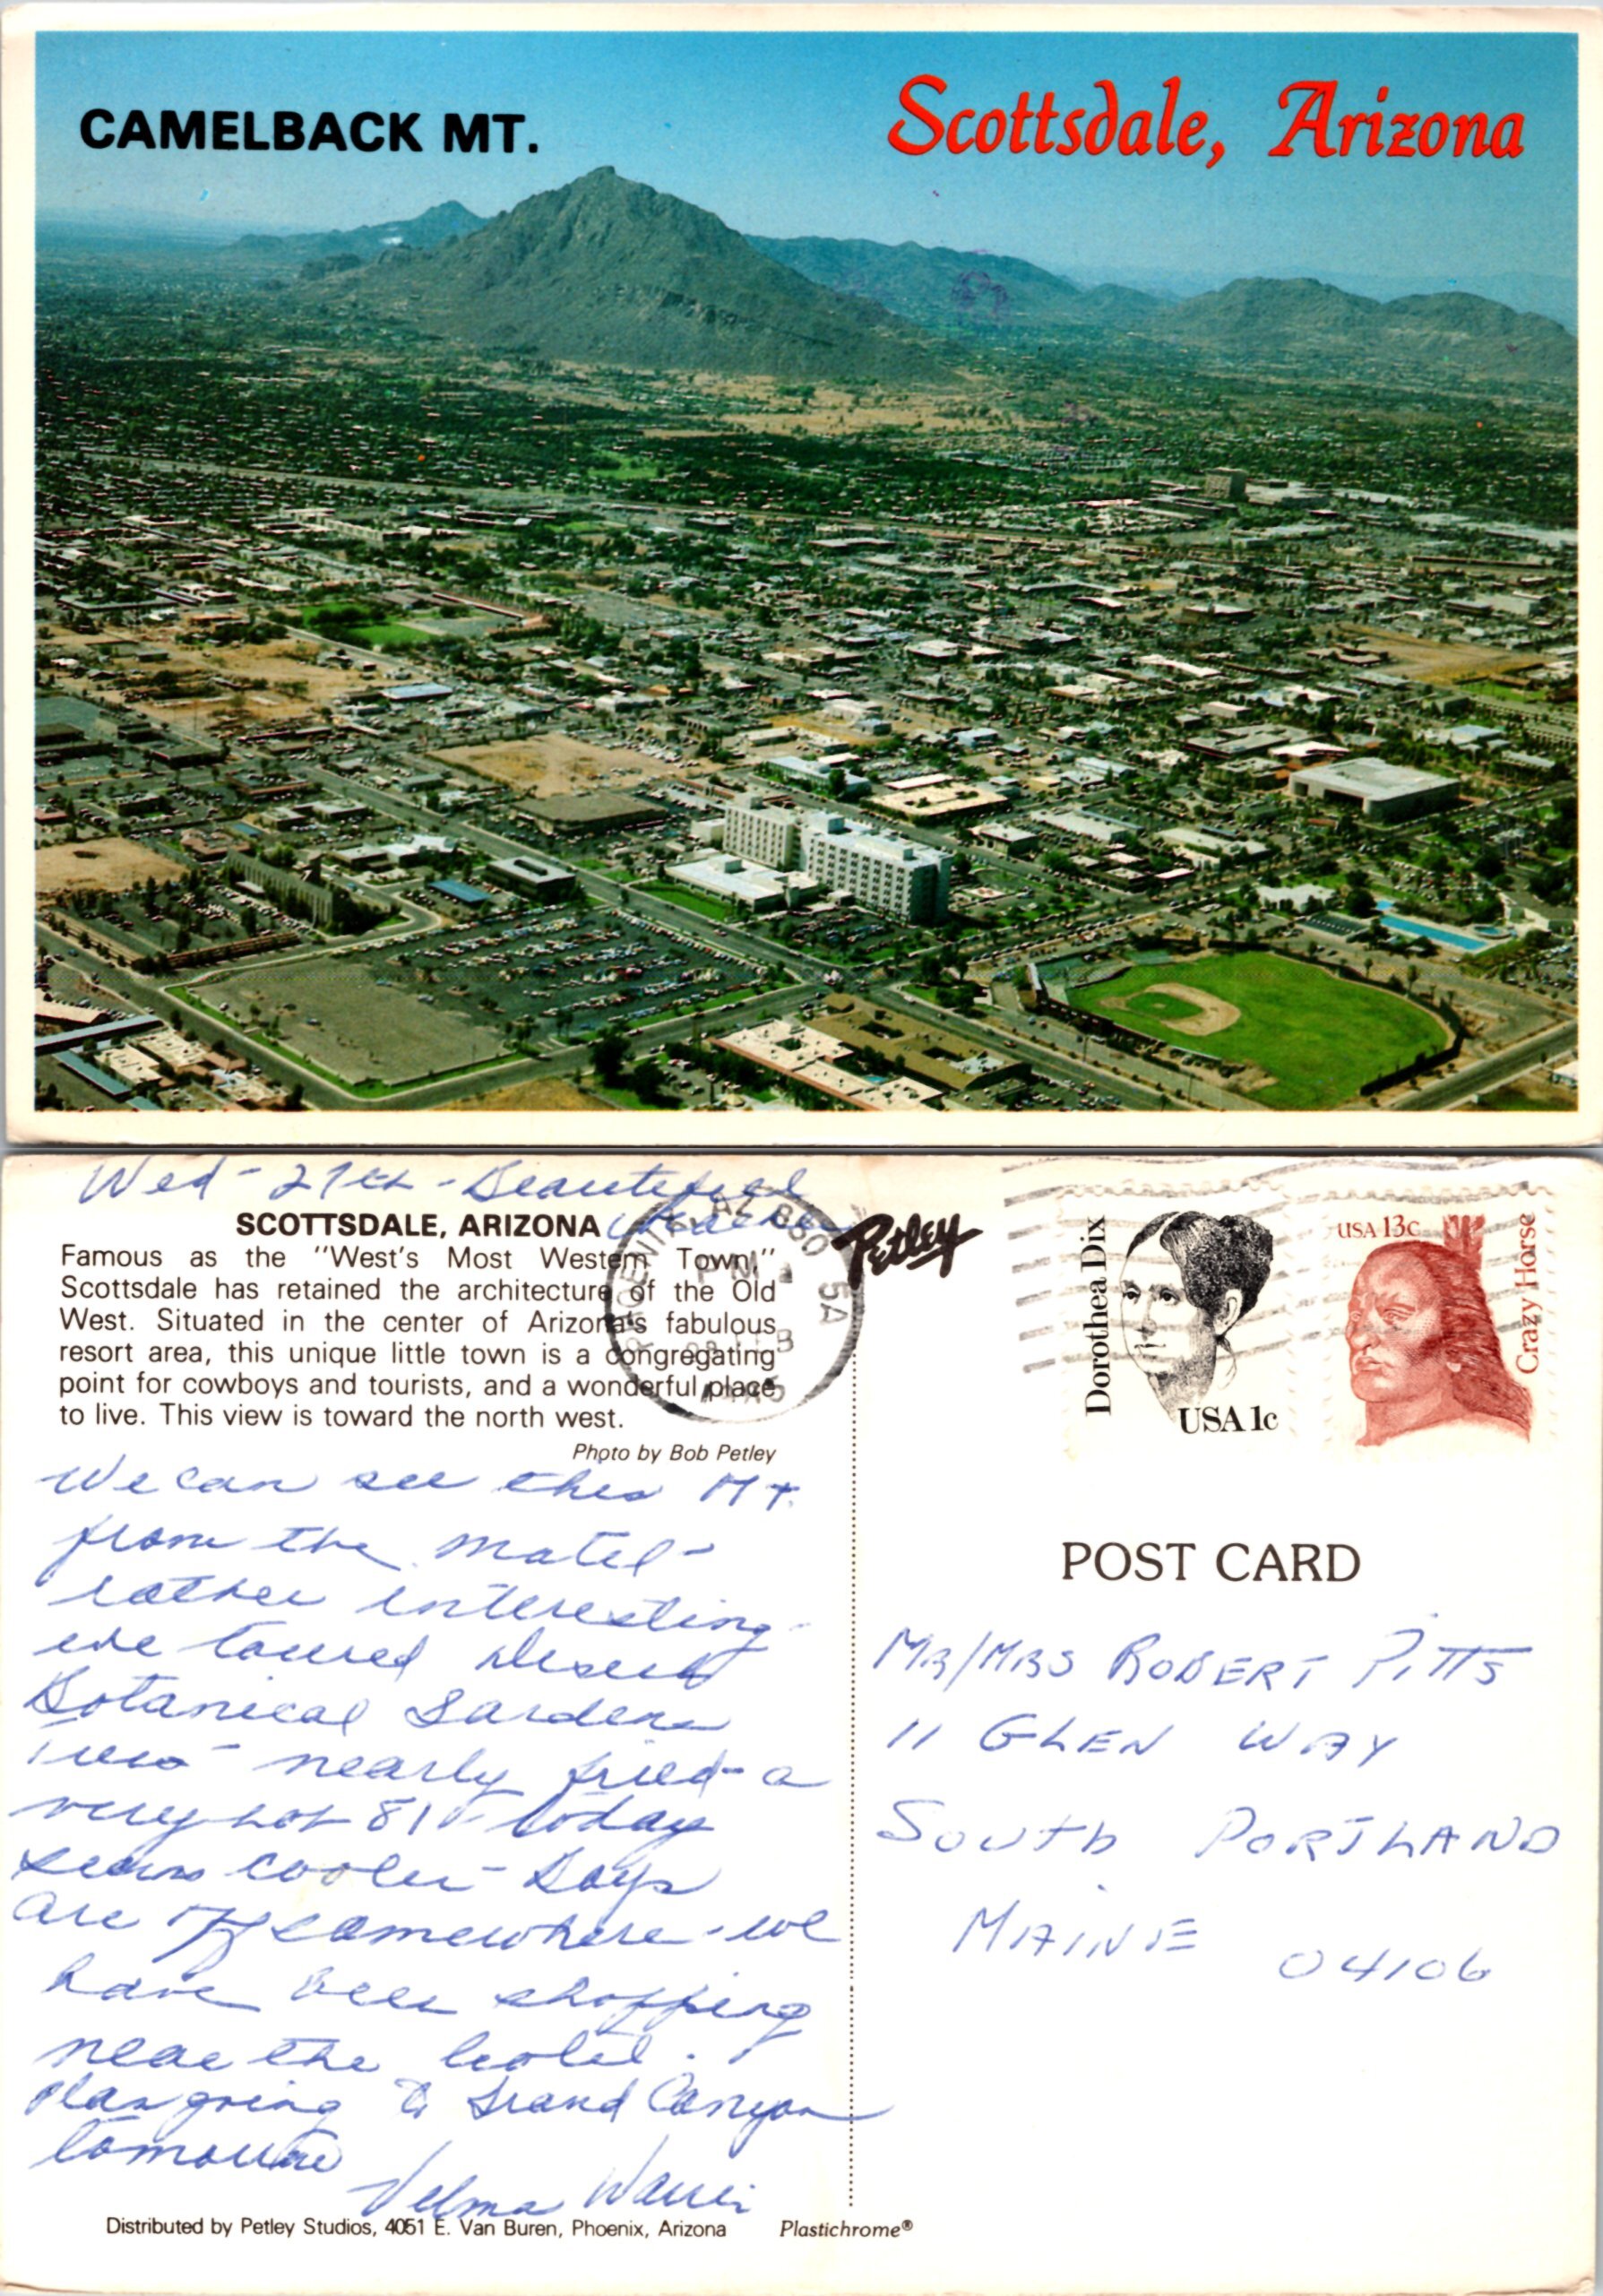 CAMELBACK MT.
Scottsdale, Arizona
Wed - 27th - Beautiful
weather
SCOTTSDALE, ARIZONA
Famous as the "West's Most Western Town,"
Scottsdale has retained the architecture of the Old
West. Situated in the center of Arizona's fabulous
resort area, this unique little town is a congregating
point for cowboys and tourists, and a wonderful place
to live. This view is toward the north west.
Photo by Bob Petley
We can see this Mt.
from the motel -
rather interesting -
we toured Desert
Botanical Gardens
nearly fried - a
very hot 81° today
seems cooler - boys
are off somewhere - we
have been shopping
near the hotel.
Plan going to Grand Canyon
tomorrow
Velma
Distributed by Petley Studios, 4051 E. Van Buren, Phoenix, Arizona
Plastichrome®
Petley
PHOENIX, AZ 850
PM
28 FEB
5A
Dorothea Dix
USA 1c
USA 13c
Crazy Horse
POST CARD
MR/MRS ROBERT PITTS
11 GLEN WAY
SOUTH PORTLAND
MAINE 04106